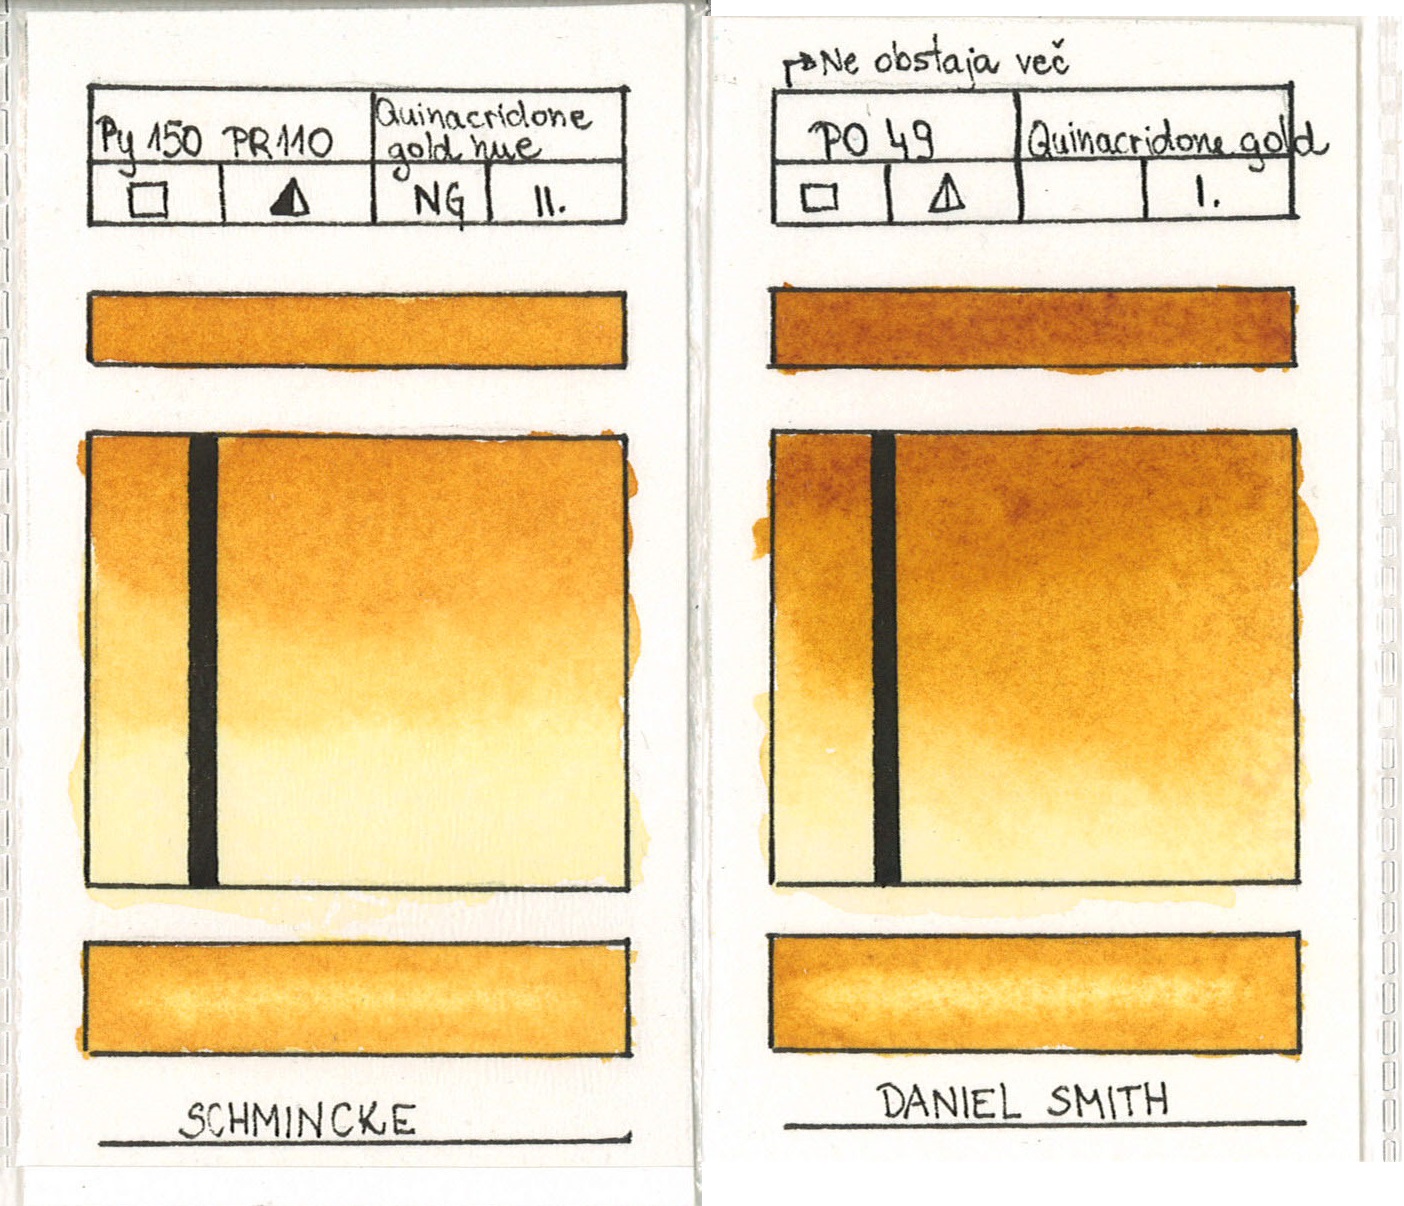 Py 150 PR110
Quinacridone
gold hue
NG
II.
SCHMINCKE
Ne obstaja več
PO 49
Quinacridone gold
I.
DANIEL SMITH